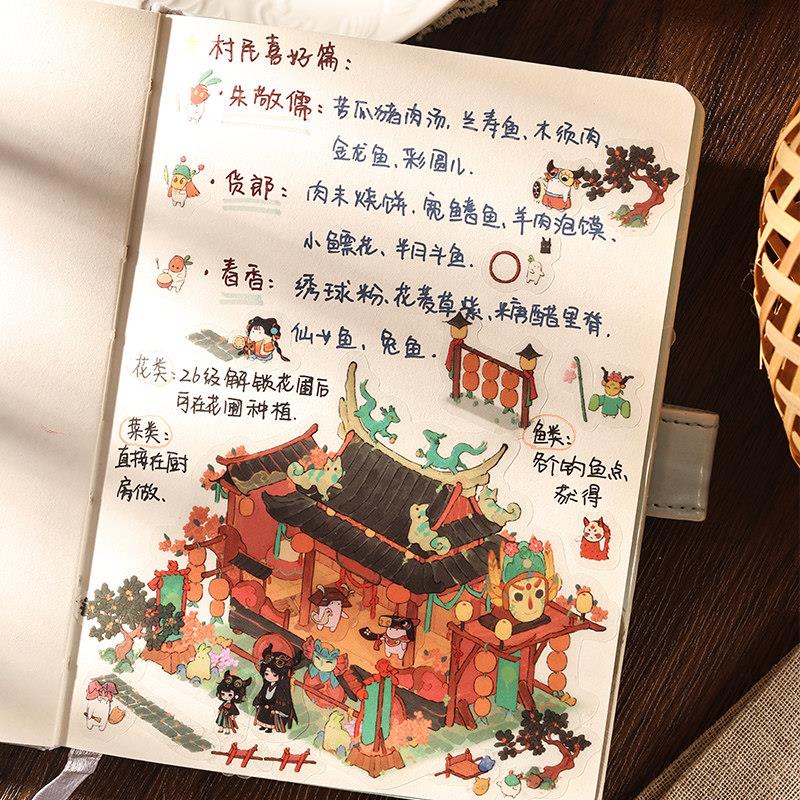 村民喜好篇：
·朱敬儒：苦瓜猪肉汤，兰寿鱼、木须肉
金龙鱼、彩圆儿.
·货郎：肉末烧饼、宽鳍鱼、羊肉泡馍、
小鳔花、半月斗鱼.
·春香：绣球粉、花菱草紫、糖醋里脊.
仙女鱼、兔鱼.
花类：26级解锁花圃后
可在花圃种植.
菜类：
直接在厨
房做.
鱼类：
各个钓鱼点
获得